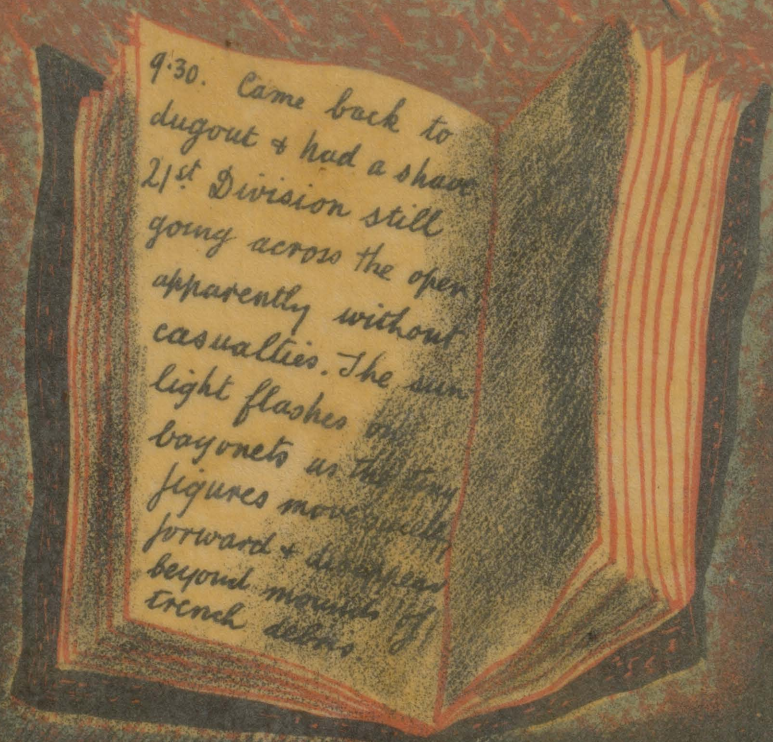 9.30. Came back to
dugout & had a shave
21st Division still
going across the open
apparently without
casualties. The sun
light flashes on
bayonets as the tiny
figures move quietly
forward & disappear
beyond mounds of
trench debris.